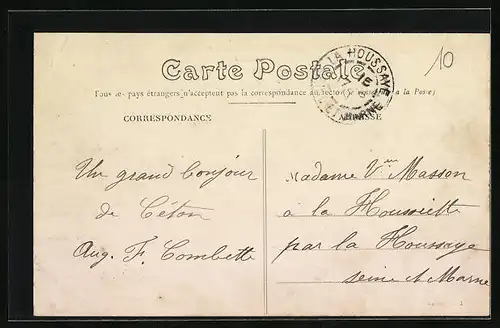 10
LA HOUSSAYE
Carte Postale
15
Tous les pays étrangers n'acceptent pas la correspondance au recto (Se à la Poste)
ET MARNE
CORRESPONDANCE
ADRESSE
Un grand bonjour
de Céton
Aug. F. Combette
Madame Vve Masson
à la Houssiette
par la Houssaye
seine et Marne